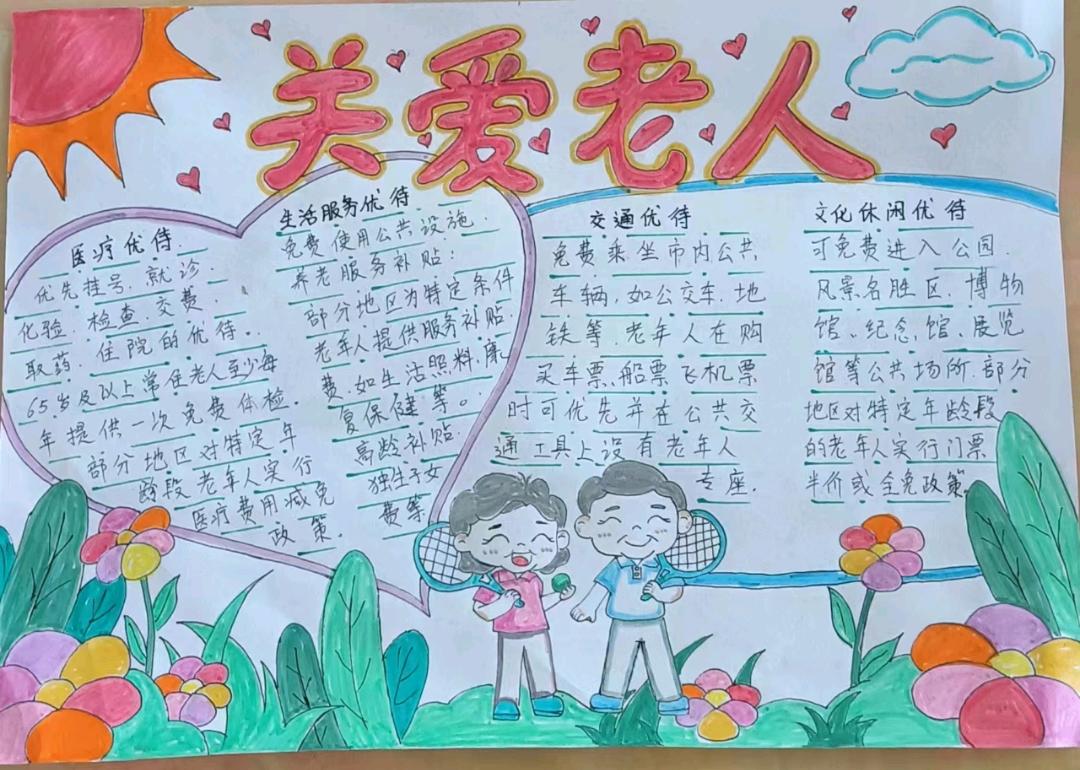 关爱老人
医疗优待.
优先挂号.就诊.
化验.检查.交费.
取药.住院的优待.
65岁及以上常住老人至少每
年提供一次免费体检.
部分地区对特定年
龄段老年人实行
医疗费用减免
政策.
生活服务优待
免费使用公共设施.
养老服务补贴:
部分地区为特定条件
老年人提供服务补贴.
费.如生活照料.康
复保健等。
高龄补贴.
独生子女
费等.
交通优待
免费乘坐市内公共
车辆.如公交车.地
铁等.老年人在购
买车票、船票飞机票
时可优先并在公共交
通工具上设有老年人
专座.
文化休闲优待
可免费进入公园.
风景名胜区.博物
馆、纪念馆、展览
馆等公共场所.部分
地区对特定年龄段
的老年人实行门票
半价或全免政策.